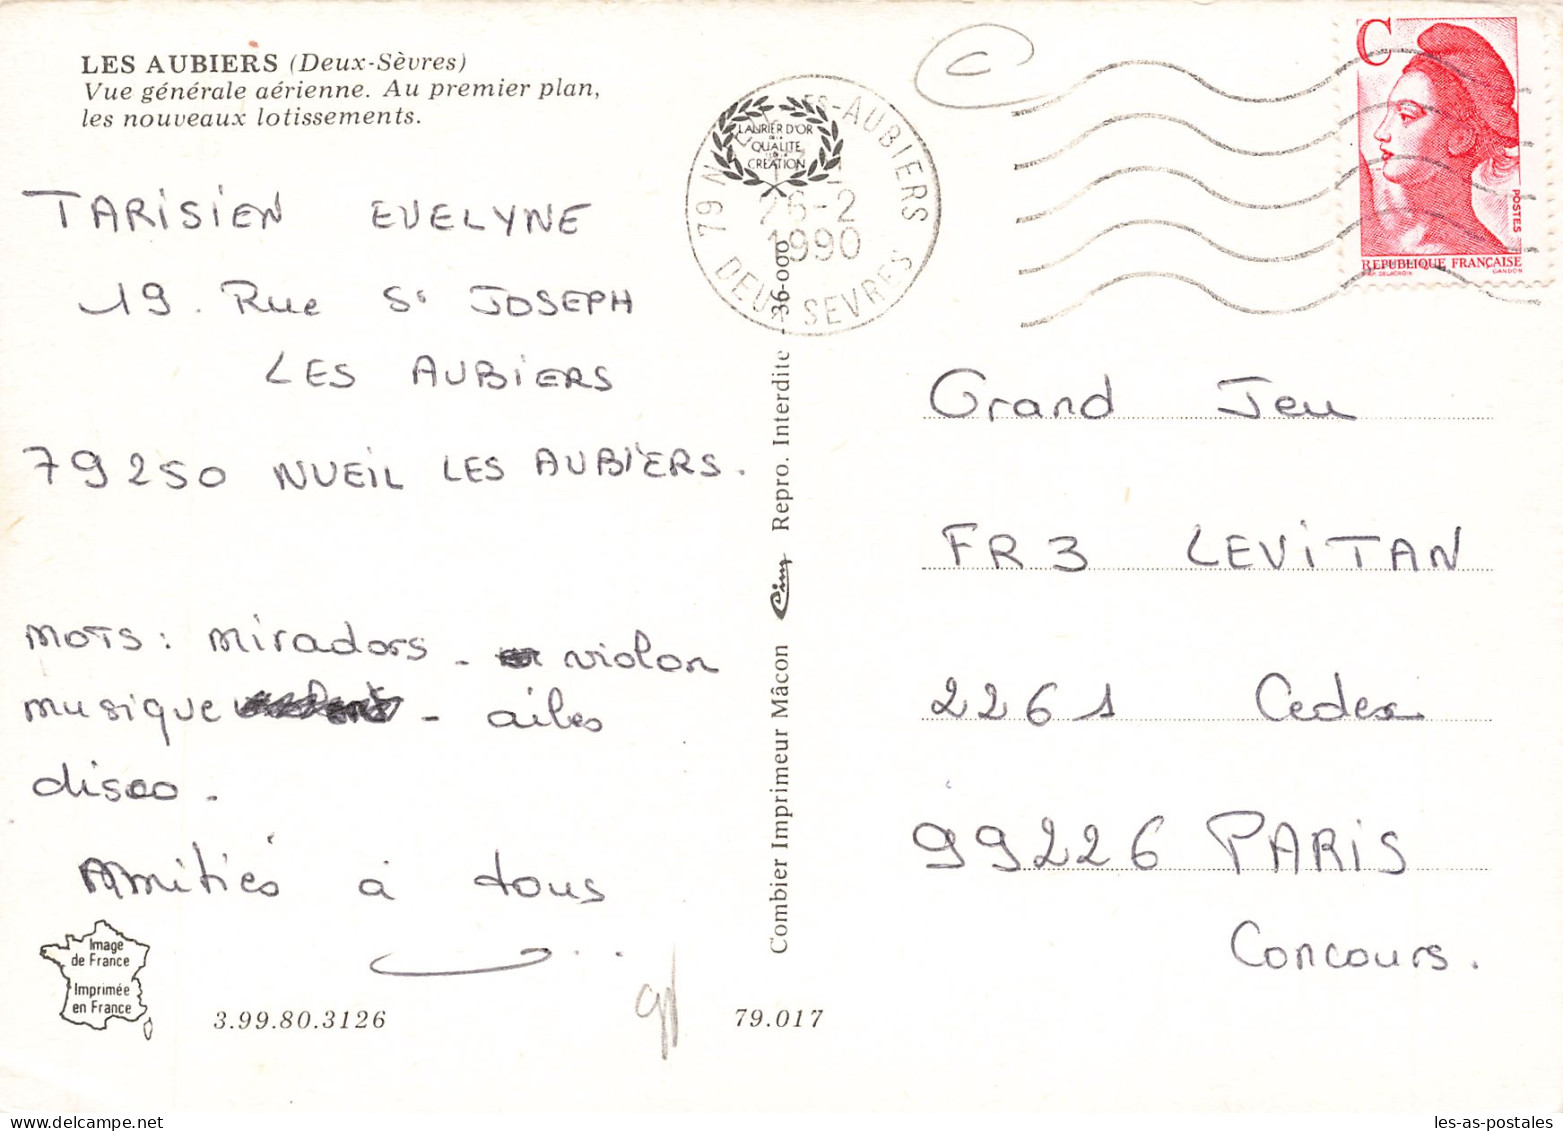 LES AUBIERS (Deux-Sèvres)
Vue générale aérienne. Au premier plan,
les nouveaux lotissements.
TARISIEN EVELYNE
19. Rue St JOSEPH
LES AUBIERS
79250 NUEIL LES AUBIERS.
MOTS : miradors - violon
musique - ailes
disco.
Amitiés à tous
Image
de France
Imprimée
en France
3.99.80.3126
79.017
LAURIER D'OR
DE LA
QUALITÉ
CRÉATION
79 LES-AUBIERS
26-2
1990
DEUX SEVRES
Combier Imprimeur Mâcon Cim Repro. Interdite - 36-000
C
C
POSTES
REPUBLIQUE FRANÇAISE
D'AP. DELACROIX GANDON
Grand Jeu
FR3 LEVITAN
2261 Cedex
99226 PARIS
Concours.
les-as-postales